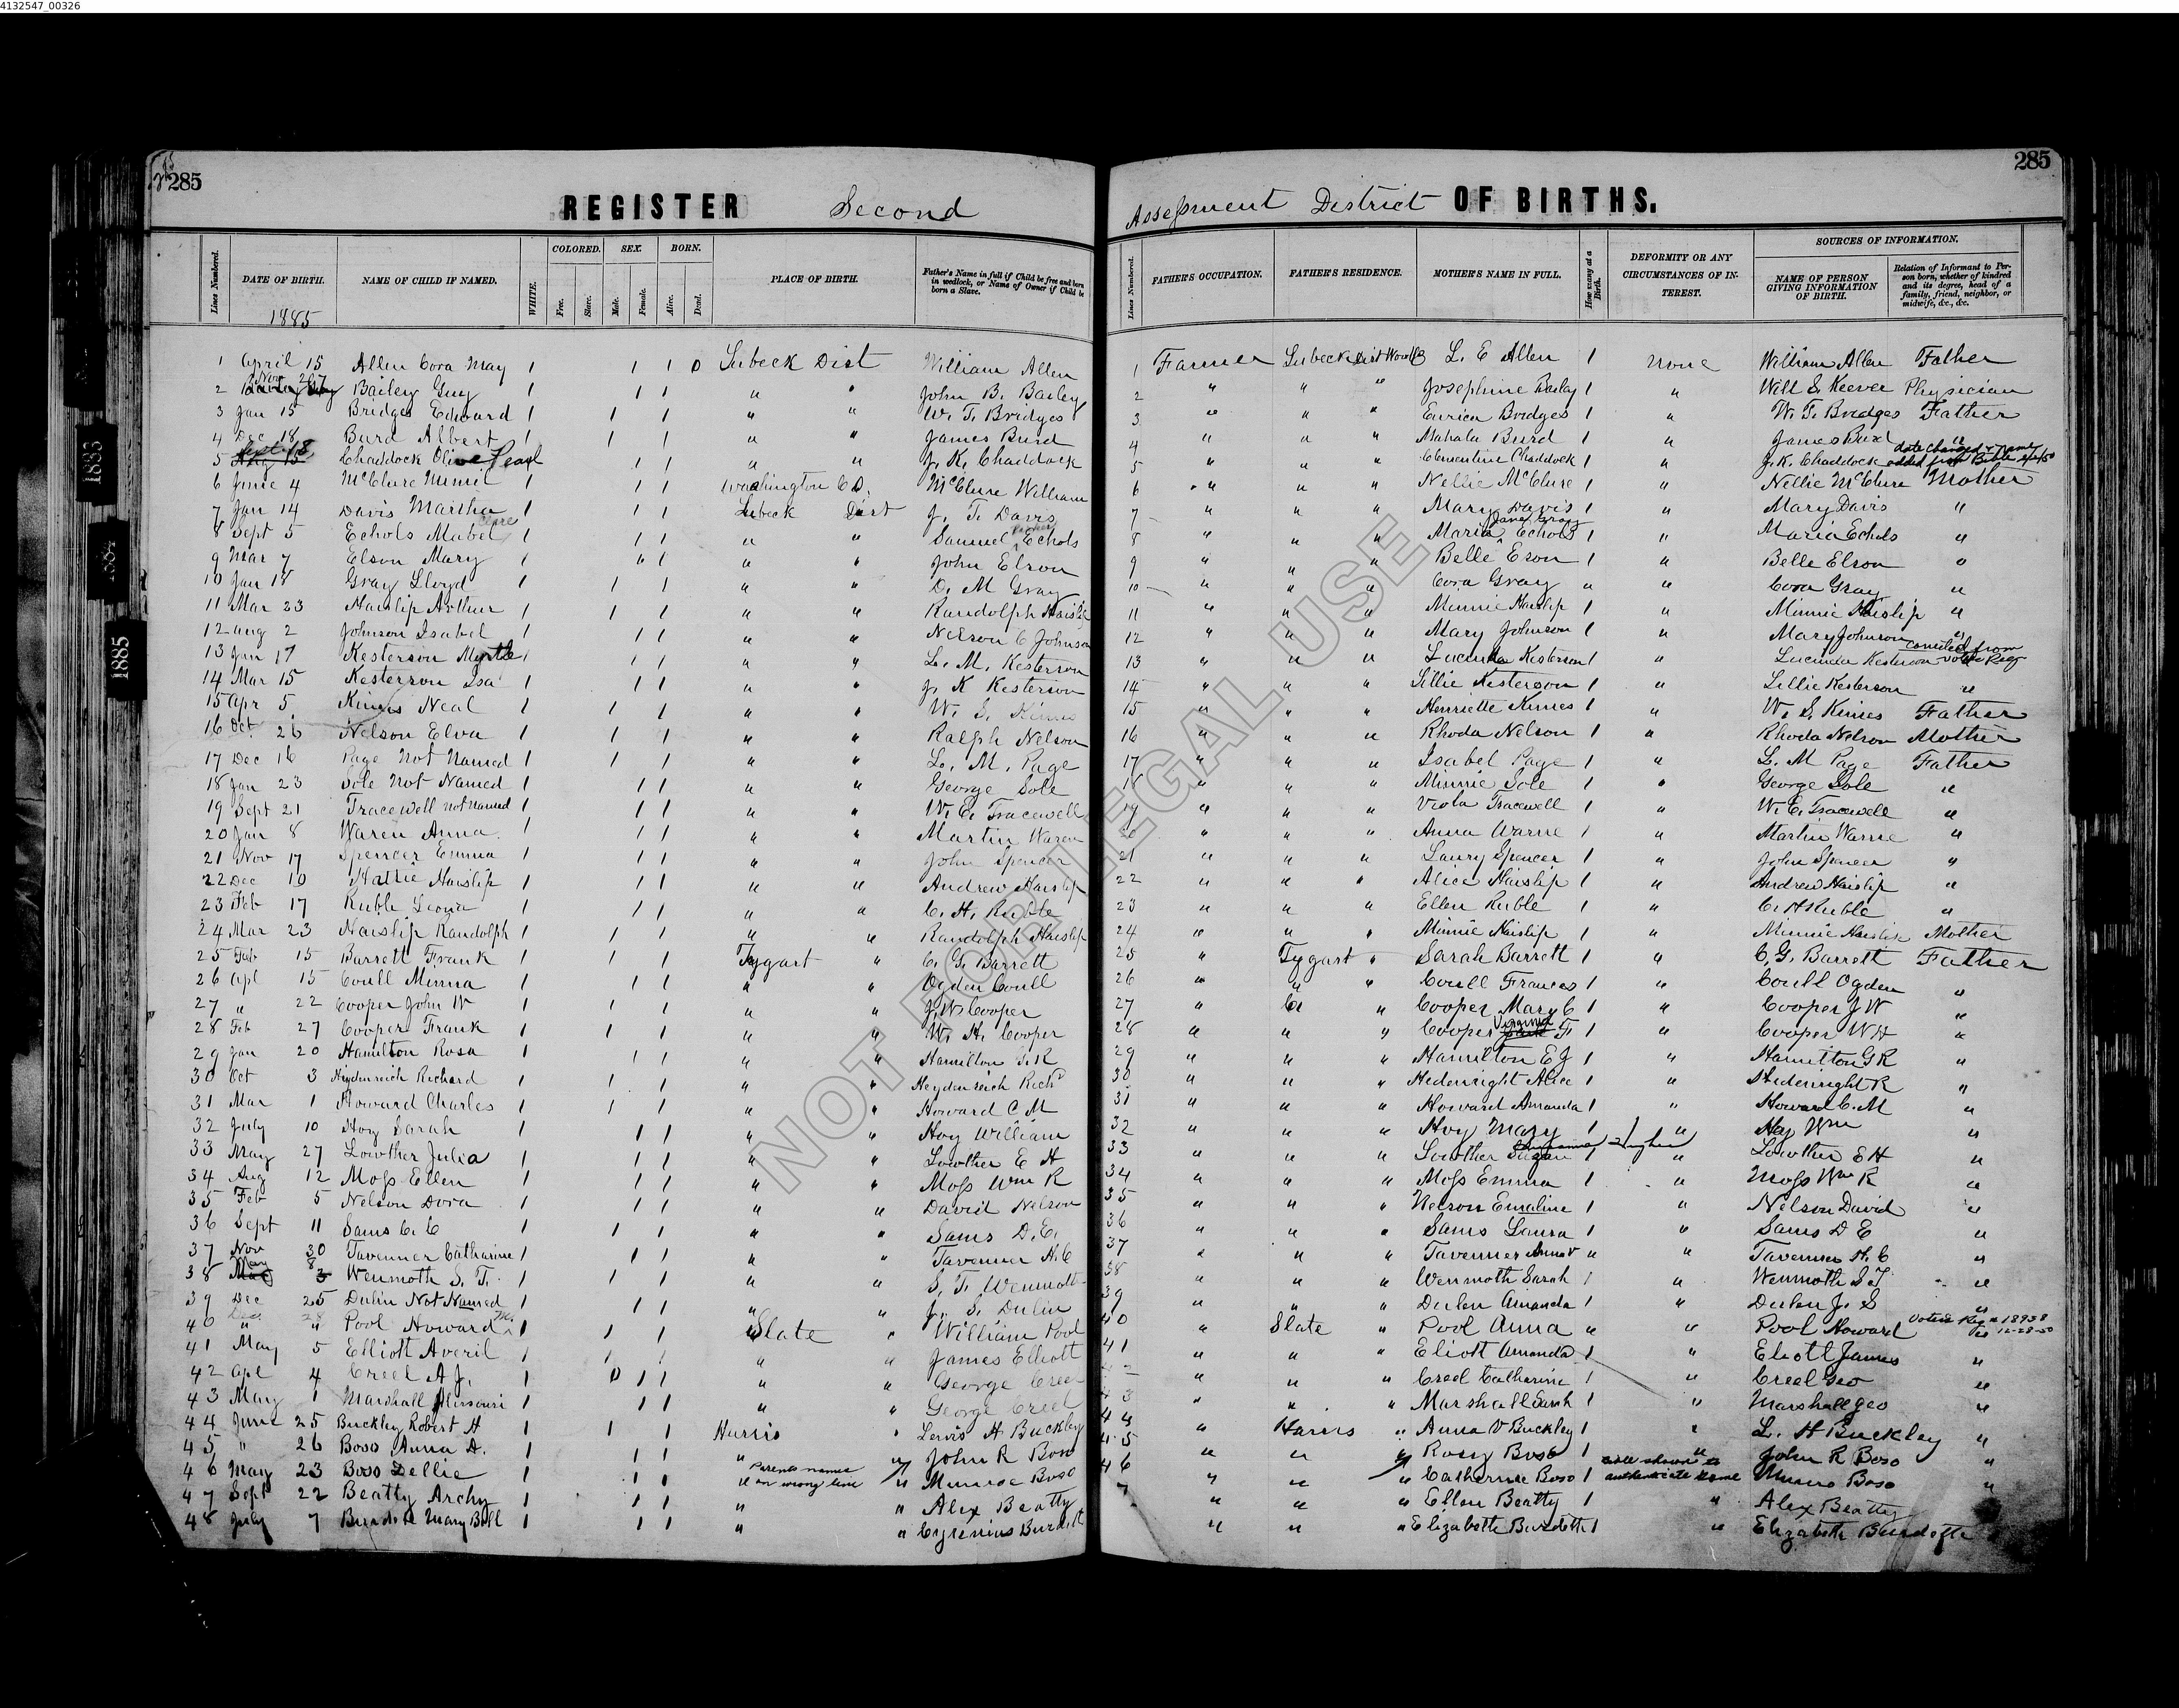 4132547_00326
285
285
REGISTER Second Assessment District OF BIRTHS.
1883
1884
1885
Lines Numbered. DATE OF BIRTH. NAME OF CHILD IF NAMED. WHITE. COLORED. Free. Slave. SEX. Male. Female. BORN. Alive. Dead. PLACE OF BIRTH. Father's Name in full if Child be free and born in wedlock, or Name of Owner if Child be born a Slave.
Lines Numbered. FATHER'S OCCUPATION. FATHER'S RESIDENCE. MOTHER'S NAME IN FULL. How many at a Birth. DEFORMITY OR ANY CIRCUMSTANCES OF INTEREST. SOURCES OF INFORMATION. NAME OF PERSON GIVING INFORMATION OF BIRTH. Relation of Informant to Person born, whether of kindred and its degree, head of a family, friend, neighbor, or midwife, &c., &c.
1885
1 April 15 Allen Cora May 1 1 1 0 Lubeck Dist William Allen 1 Farmer Lubeck Dist L. E Allen 1 None William Allen Father
2 Nov 27 Bailey Guy 1 1 1 " " John B. Bailey 2 " " " Josephine Bailey 1 " Will S Keever Physician
3 Jan 15 Bridges Edward 1 1 1 " " W. T. Bridges 3 " " " Bridges 1 " W. T. Bridges Father
4 Dec 18 Burd Albert 1 1 1 " " James Burd 4 " " " Mahala Burd 1 " James Burd "
5 Sept 13 Chaddock Olive Pearl 1 1 " " J. K. Chaddock 5 " " " Clementine Chaddock 1 " J. K. Chaddock date changed & name added from Bible
6 June 4 McClure Minnie 1 1 1 Washington Co. McClure William 6 " " " Nellie McClure 1 " Nellie McClure Mother
7 Jan 14 Davis Martha 1 1 1 Lubeck Dist J. T. Davis 7 " " " Mary Davis 1 " Mary Davis "
8 Sept 5 Echols Mabel 1 1 1 " " Samuel Echols 8 " " " Maria Jane Gray Echols 1 " Maria Echols "
9 Mar 7 Elson Mary 1 " 1 " " John Elson 9 " " " Belle Eson 1 " Belle Elson "
10 Jan 18 Gray Lloyd 1 1 1 " " D. M Gray 10 " " " Cora Gray " " Cora Gray "
11 Mar 23 Haislip Arthur 1 1 1 " " Randolph Haislip 11 " " " Minnie Haislip 1 " Minnie Haislip "
12 Aug 2 Johnson Isabel 1 1 1 " " Nelson C Johnson 12 " " " Mary Johnson 1 " Mary Johnson "
13 Jan 17 Kesterson Myrtle 1 1 1 " " L. M. Kesterson 13 " " " Lucinda Kesterson 1 " Lucinda Kesterson corrected from Voters Reg
14 Mar 15 Kesterson Isa 1 1 1 " " J. K Kesterson 14 " " " Lillie Kesterson 1 " Lillie Kesterson "
15 Apr 5 Kimes Neal 1 1 1 " " W. S. Kimes 15 " " " Henriette Kimes 1 " W. S. Kimes Father
16 Oct 26 Nelson Elva 1 1 1 " " Ralph Nelson 16 " " " Rhoda Nelson 1 " Rhoda Nelson Mother
17 Dec 16 Page Not Named 1 1 1 " " L. M. Page 17 " " " Isabel Page 1 " L. M Page Father
18 Jan 23 Sole Not Named 1 1 1 " " George Sole 18 " " " Minnie Sole 1 " George Sole "
19 Sept 21 Tracewell not named 1 1 1 " " W. E. Tracewell 19 " " " Viola Tracewell 1 " W. E. Tracewell "
20 Jan 8 Waren Anna 1 1 1 " " Martin Waren 20 " " " Anna Warne 1 " Martin Warne "
21 Nov 17 Spencer Emma 1 1 1 " " John Spencer 21 " " " Laury Spencer 1 " John Spencer "
22 Dec 10 Hattie Haislip 1 1 1 " " Andrew Haislip 22 " " " Alice Haislip 1 " Andrew Haislip "
23 Feb 17 Ruble Leona 1 1 1 " " C. H. Ruble 23 " " " Ellen Ruble 1 " C. H Ruble "
24 Mar 23 Haislip Randolph 1 1 1 " " Randolph Haislip 24 " " " Minnie Haislip 1 " Minnie Haislip Mother
25 Feb 15 Barrett Frank 1 1 1 Tygart " C. G. Barrett 25 " Tygart " Sarah Barrett 1 " C. G. Barrett Father
26 Apl 15 Coull Minna 1 1 1 " " Ogden Coull 26 " " " Coull Frances 1 " Coull Ogden "
27 " 22 Cooper John W 1 1 1 " " J. W. Cooper 27 " " " Cooper Mary C 1 " Cooper J W "
28 Feb 27 Cooper Frank 1 1 1 " " W. H. Cooper 28 " " " Cooper Virginia F. 1 " Cooper W H "
29 Jan 20 Hamilton Rosa 1 1 1 " " Hamilton G. R 29 " " " Hamilton E J 1 " Hamilton G R "
30 Oct 3 Heydenreich Richard 1 1 1 " " Heydenreich Richd 30 " " " Hedenright Alice 1 " Hedenright R "
31 Mar 1 Howard Charles 1 1 1 " " Howard C M 31 " " " Howard Amanda 1 " Howard C. M "
32 July 10 Hoy Sarah 1 1 1 " " Hoy William 32 " " " Hoy Mary 1 " Hoy Wm "
33 May 27 Lowther Julia 1 1 1 " " Lowther E H 33 " " " Lowther Susan 1 " Lowther E H "
34 Aug 12 Moss Ellen 1 1 1 " " Moss Wm R 34 " " " Moss Emma 1 " Moss Wm R "
35 Feb 5 Nelson Dora 1 1 1 " " David Nelson 35 " " " Nelson Emaline 1 " Nelson David "
36 Sept 11 Sams C. C 1 1 1 " " Sams D. E. 36 " " " Sams Laura 1 " Sams D E "
37 Nov 30 Tavenner Catharine 1 1 1 " " Tavenner H. C 37 " " " Tavenner Anna V " " Tavenner H. C "
38 May 8 Wenmoth S. T. 1 1 1 " " S. T. Wenmoth 38 " " " Wenmoth Sarah 1 " Wenmoth S T "
39 Dec 25 Dulin Not Named 1 1 1 " " J. S. Dulin 39 " " " Dulen Amanda 1 " Dulen J. S "
40 " " Pool Howard M. 1 1 1 Slate " William Pool 40 Slate " Pool Anna " " Pool Howard Voters Reg # 18938 12-28-50
41 May 5 Elliott Averil 1 1 1 " " James Elliott 41 " " " Eliott Amanda 1 " Eliott James "
42 Apl 4 Creel A J. 1 0 1 1 " " George Creel " " " Creel Catharine 1 " Creel Geo "
43 May 1 Marshall Missouri 1 1 1 " " George Creel 3 " " " Marshall Sarah 1 " Marshall Geo "
44 June 25 Buckley Robert H 1 1 1 Harris " Lewis H Buckley 44 " Harris " Anna V Buckley 1 " L. H Buckley "
45 " 26 Boso Anna D. 1 1 1 " " John R Boso 45 " " " Rosy Boso 1 " John R Boso "
46 May 23 Boso Dellie 1 1 1 " Parents names on wrong line " Munroe Boso 46 " " " Catherine Boso 1 shown to authenticate name Munro Boso "
47 Sept 22 Beatty Archy 1 1 1 " " Alex Beatty 7 " " " Ellen Beatty 1 " Alex Beatty
48 July 7 Burdette Mary Bell 1 1 1 " " Cyrenius Burdett " " " Elizabeth Burdette 1 " Elizabeth Burdette
NOT FOR LEGAL USE